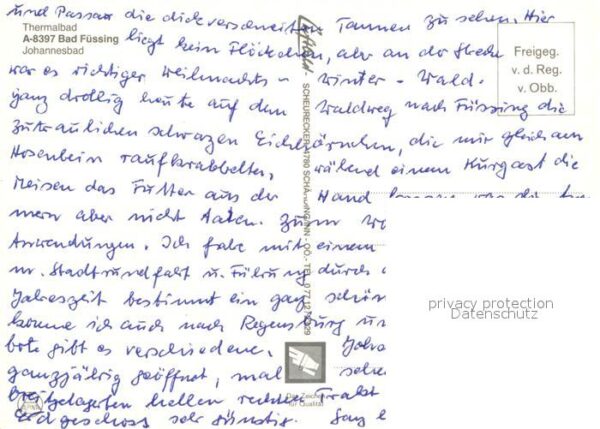 und Passau die dick verschneiten Tannen zu sehen. Hier
Thermalbad
A-8397 Bad Füssing
Johannesbad
liegt kein Flöckchen, aber an der Strecke
war es richtiger Weihnachts - Winter - Wald.
Ganz drollig heute auf dem Waldweg nach Füssing die
zutraulichen schwarzen Eichhörnchen, die mir gleich am
Hosenbein raufkrabbelten, während einem Kurgast die
Meisen das Futter aus der Hand
mern aber nicht taten. Zum
Anwendungen. Ich habe mit einem
m. Stadtrundfahrt u. Führung durch
Jahreszeit bestimmt ein ganz schön
komme ich auch nach Regensburg un
bote gibt es verschiedene. Johan
ganzjährig geöffnet, mal sehen
breitgelagerten hellen rechten Trakt
Erdgeschoss sehr günstig. Ganz
Freigeg.
v. d. Reg.
v. Obb.
Die Zeichen
für Qualität
privacy protection
Datenschutz